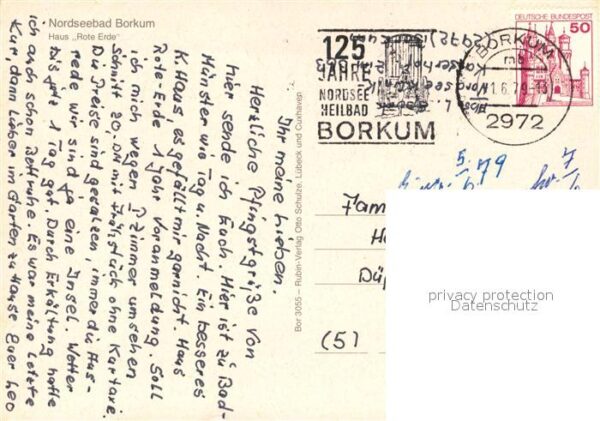 Nordseebad Borkum
Haus „Rote Erde"
Ihr meine Lieben.
Herzliche Pfingstgrüße von
hier sende ich Euch. Hier ist zu Bad-
Münster wie Tag u. Nacht. Ein besseres
K. Haus es gefällt mir garnicht. Haus
Rote-Erde 1 Jahr Voranmeldung. Soll
ich mich wegen Zimmer umsehen
Schnitt 20,- DM mit Frühstück ohne Kurtaxe.
Die Preise sind gesalzen, immer die Aus-
rede wir sind ja eine Insel. Wetter
bis jetz 1 Tag gut. Durch Erkältung hatte
ich auch schon Bettruhe. Es war meine letzte
Kur, dann lieber im Garten zu Hause Euer Leo
Bor 3055 – Rubin-Verlag Otto Schulze, Lübeck und Cuxhaven
125
JAHRE
NORDSEE
HEILBAD
BORKUM
BORKUM
2972
DEUTSCHE BUNDESPOST
50
(2972) Borkum
5.79
Fam
Ha
Düs
(51
privacy protection
Datenschutz